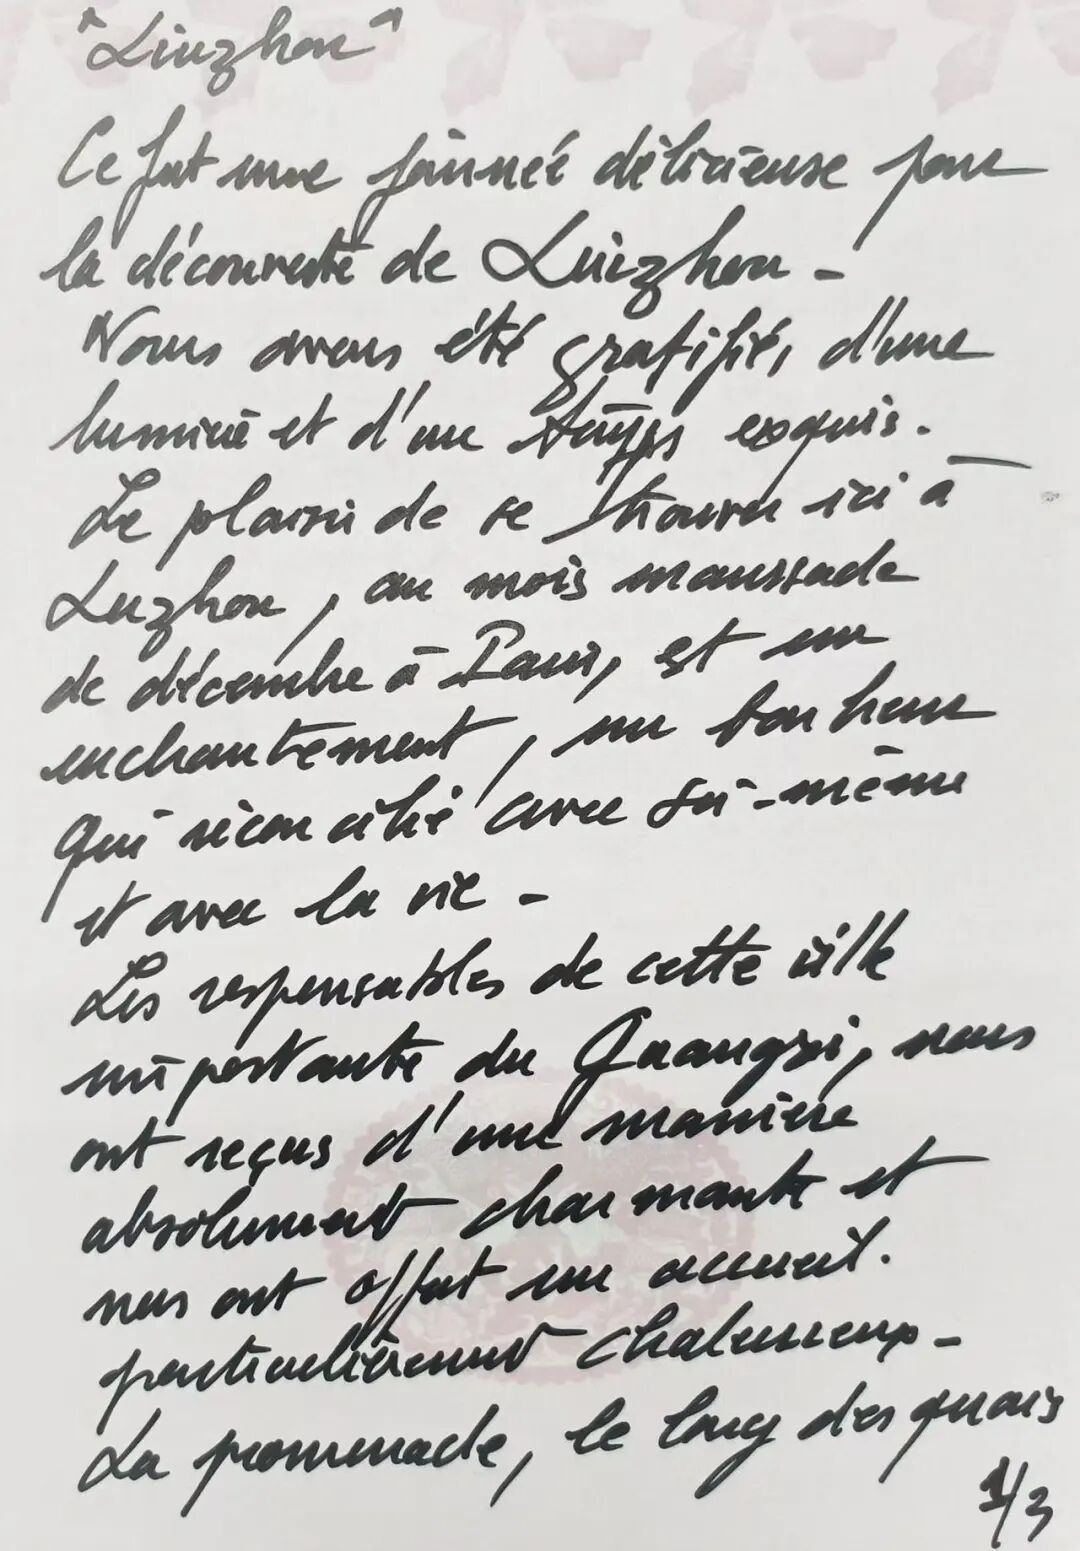 "Liuzhou"
Ce fut une journée délicieuse pour
la découverte de Liuzhou -
Nous avons été gratifiés d'une
lumière et d'un temps exquis.
Le plaisir de se trouver ici à
Luzhou, au mois maussade
de décembre à Paris, est un
enchantement, un bonheur
qui réconcilie avec soi-même
et avec la vie -
Les responsables de cette ville
importante du Guangxi, nous
ont reçus d'une manière
absolument charmante et
nous ont offert un accueil.
particulièrement chaleureux -
La promenade, le long des quais
1/3